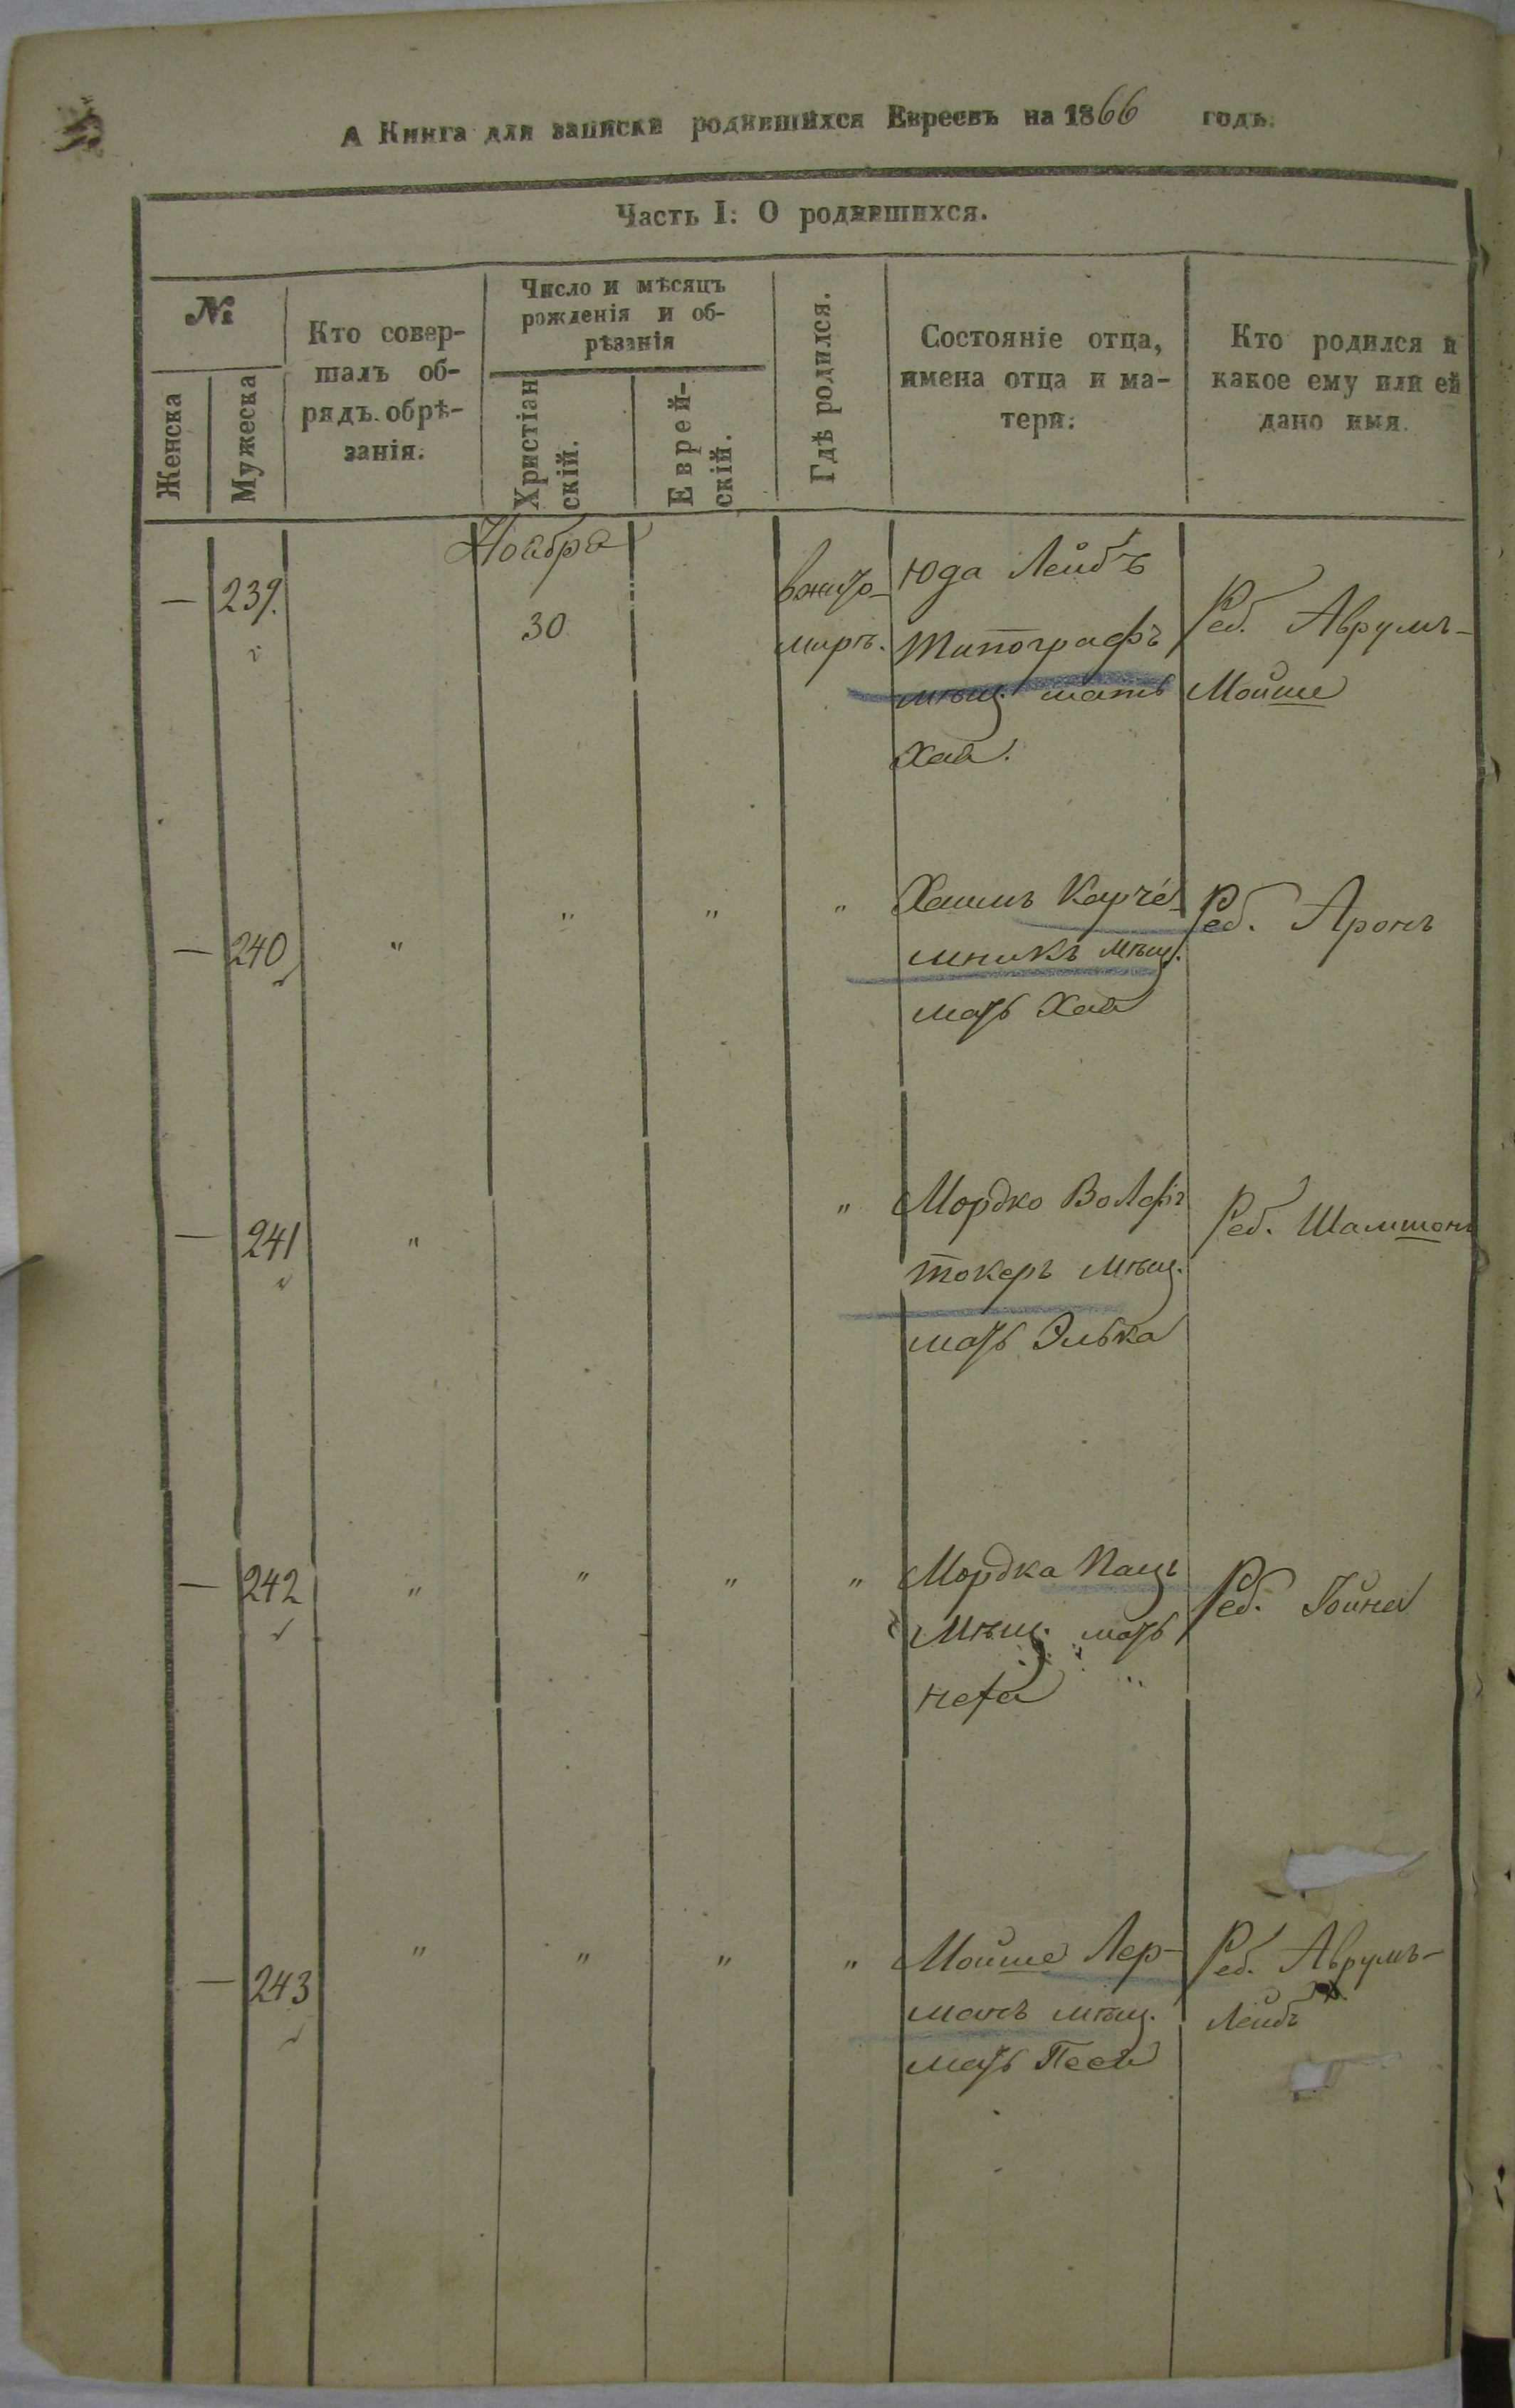 А Книга для записки родившихся Евреевъ на 1866 годъ.
Часть I: О родившихся.
№
Женска
Мужеска
Кто совер-
шалъ об-
рядъ обрѣ-
занія.
Число и мѣсяцъ
рожденія и об-
рѣзанія
Христіан
скій.
Еврей-
скій.
Гдѣ родился.
Состояніе отца,
имена отца и ма-
тери.
Кто родился и
какое ему или ей
дано имя.
Ноабра
— 239.
30
вжито-
миръ.
Юда Лейбъ
Типографъ
мѣщ. мать
Хая.
Реб. Аврумъ-
Мойше
— 240 " " " "
Хаимъ Карче-
мникъ мѣщ.
мать Хая
Реб. Аронъ
— 241 " "
Мордко Волфъ
Токеръ мѣщ.
мать Элька
Реб. Шамшонъ
— 242 " " " "
Мордка Пацъ
мѣщ. мать
Реб. Гойна
— 243 " " " "
Мойше Лер-
манъ мѣщ.
мать Песя
Реб. Аврумъ-
Лейбъ